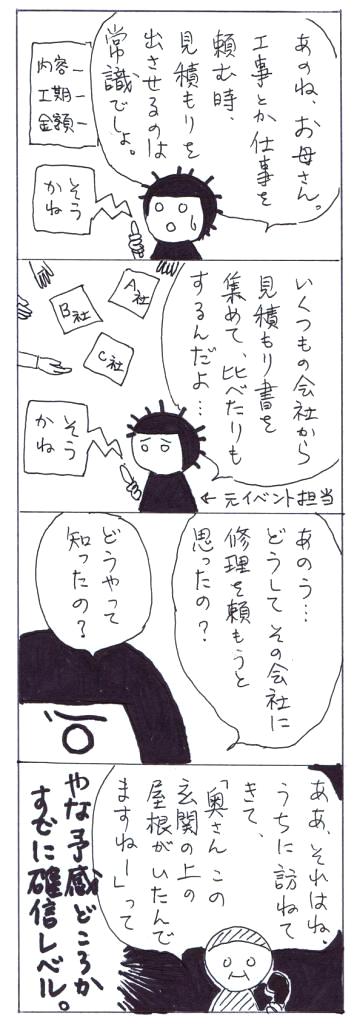 あのね、お母さん。
工事とか仕事を
頼む時、
見積もりを
出させるのは
常識でしょ。
内容ー
工期ー
金額ー
そう
かね
いくつもの会社から
見積もり書を
集めて、比べたりも
するんだよ…
A社
B社
C社
そう
かね
←元イベント担当
あのう…
どうしてその会社に
修理を頼もうと
思ったの?
どうやって
知ったの?
ああ、それはね、
うちに訪ねて
きて、
「奥さんこの
玄関の上の
屋根がいたんで
ますねー」って
やな予感どころか
すでに確信レベル。